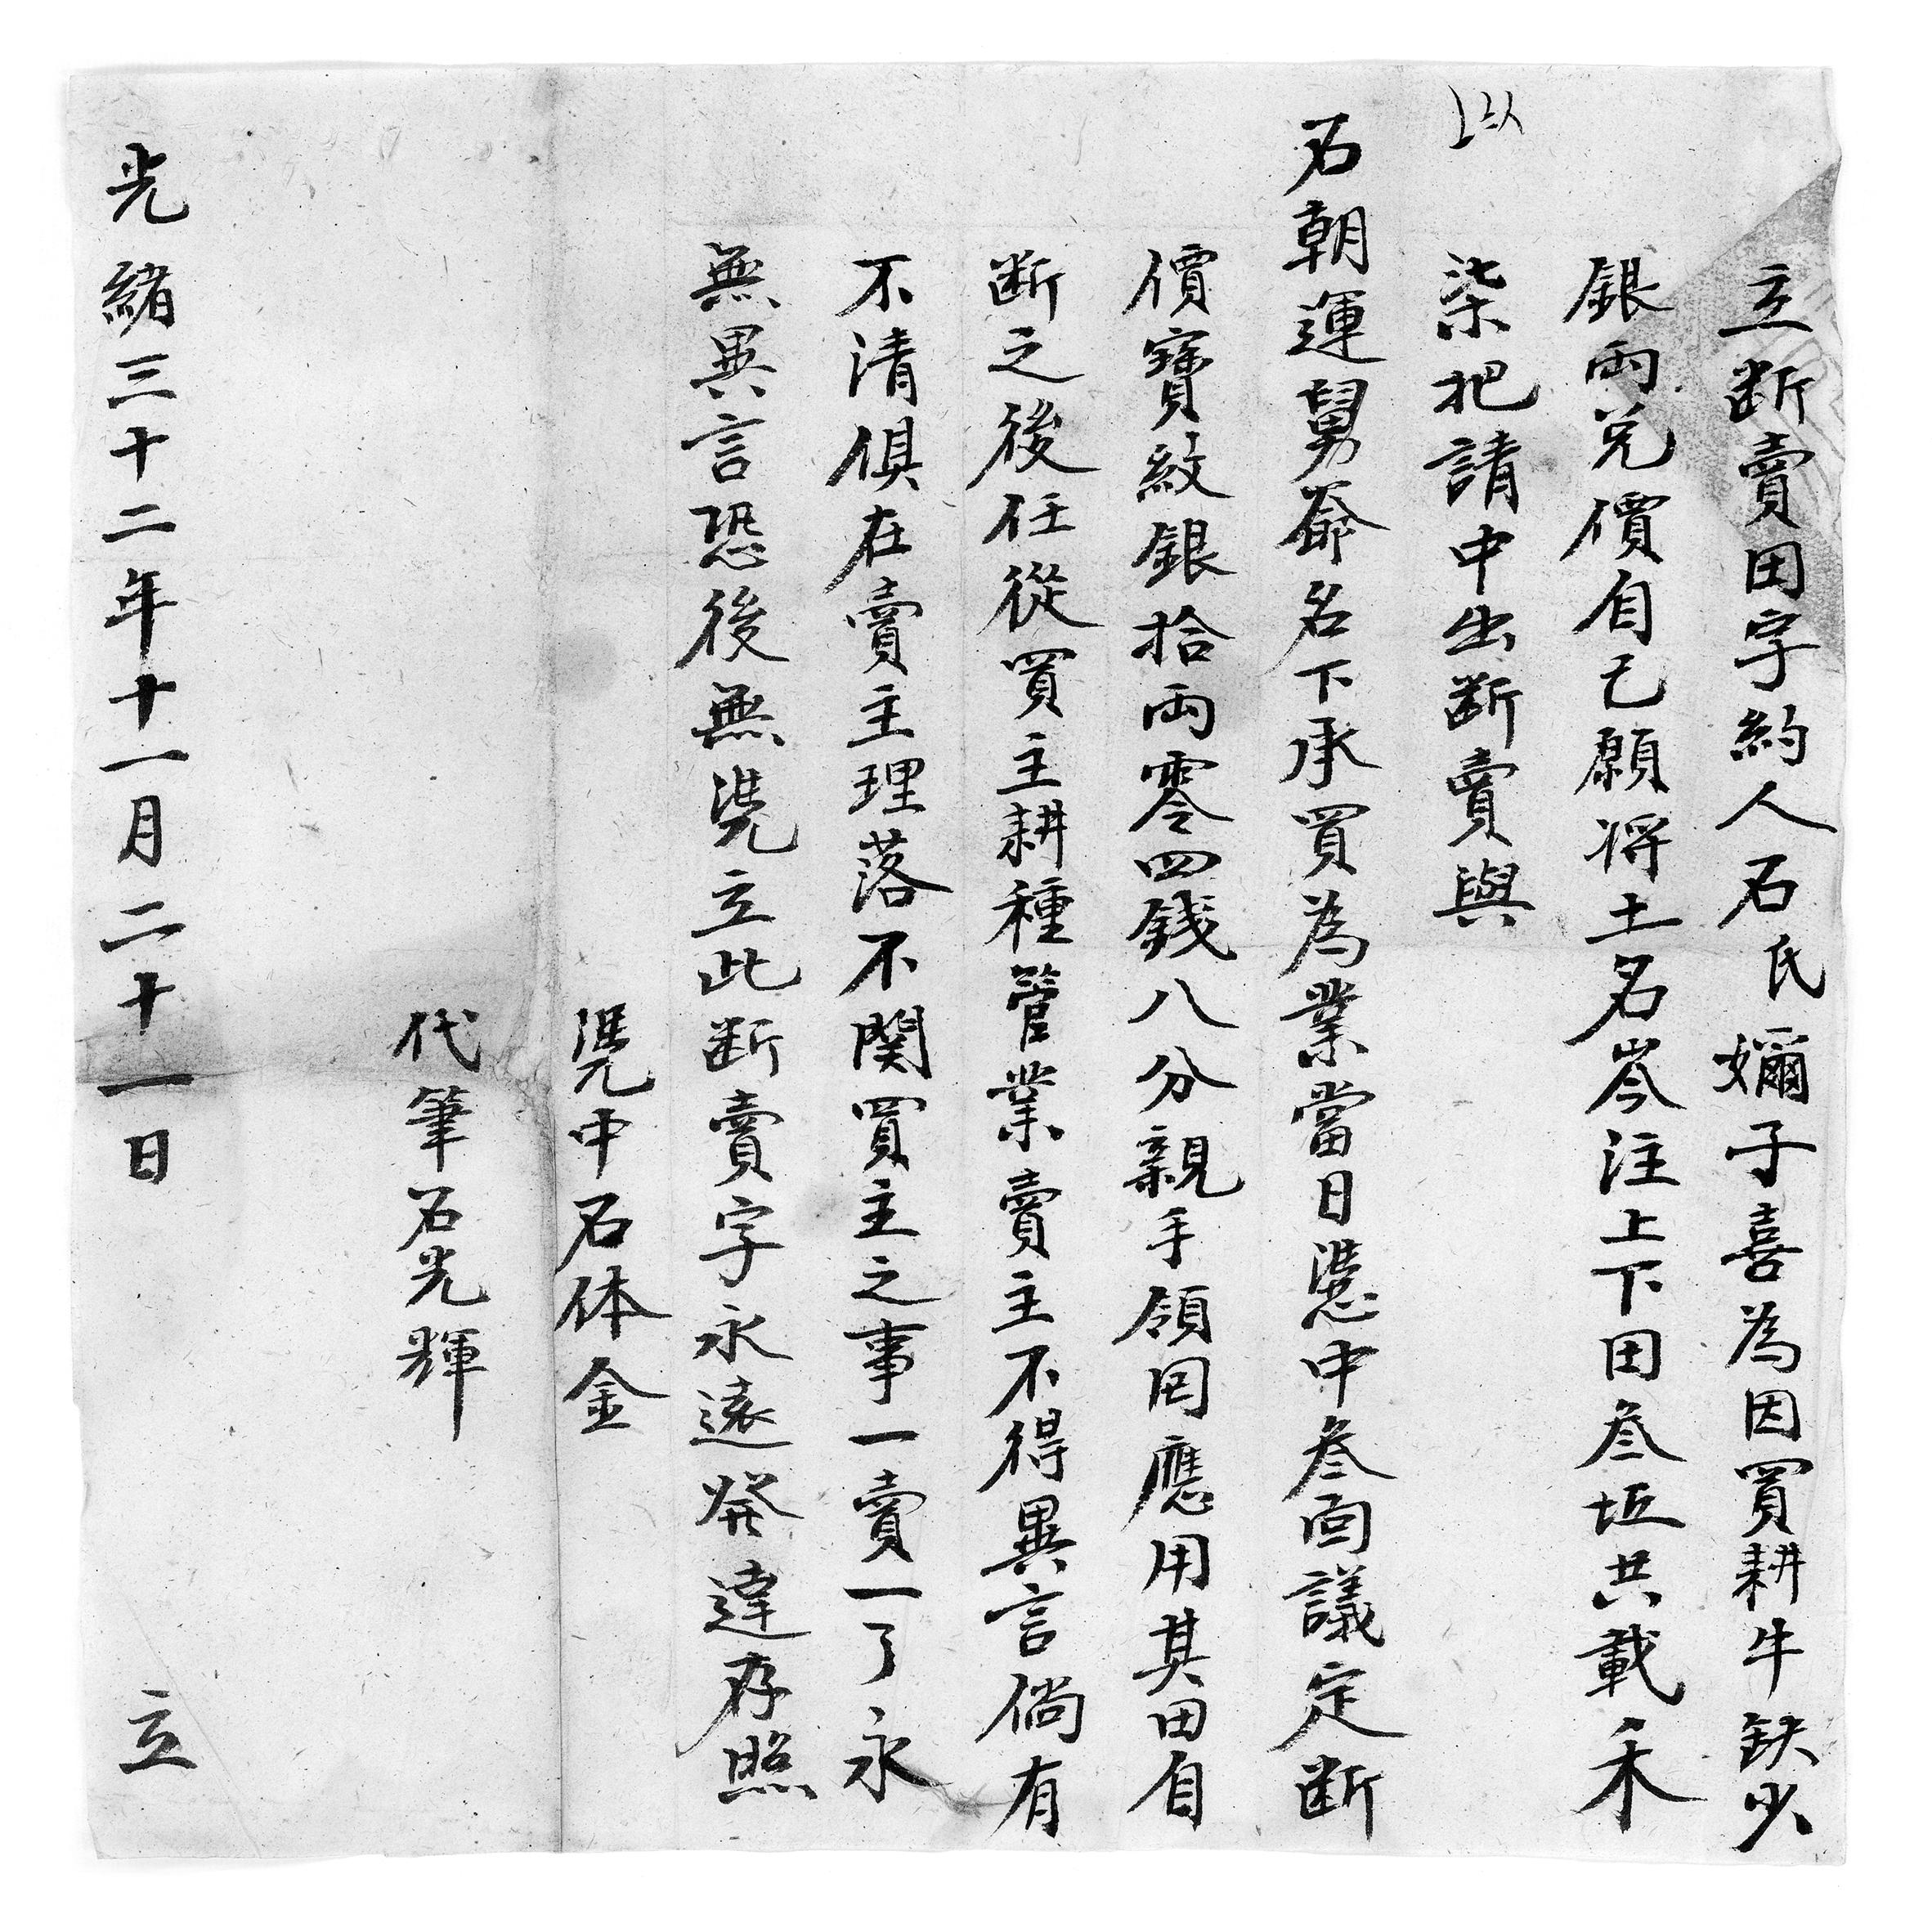 立断賣田字約人石氏嬭子喜為因買耕牛缺少
銀両兑價自己願將土名岑注上下田叁坵共載禾
柒把請中出断賣與
石朝運舅爺名下承買為業當日憑中叁面議定断
價寶紋銀拾両零四錢八分親手領囘應用其田自
断之後任從買主耕種管業賣主不得異言倘有
不清俱在賣主理落不関買主之事一賣一了永
無異言恐後無凴立此断賣字永遠發達存照
凴中石体金
代筆石光輝
光緒三十二年十一月二十一日 立